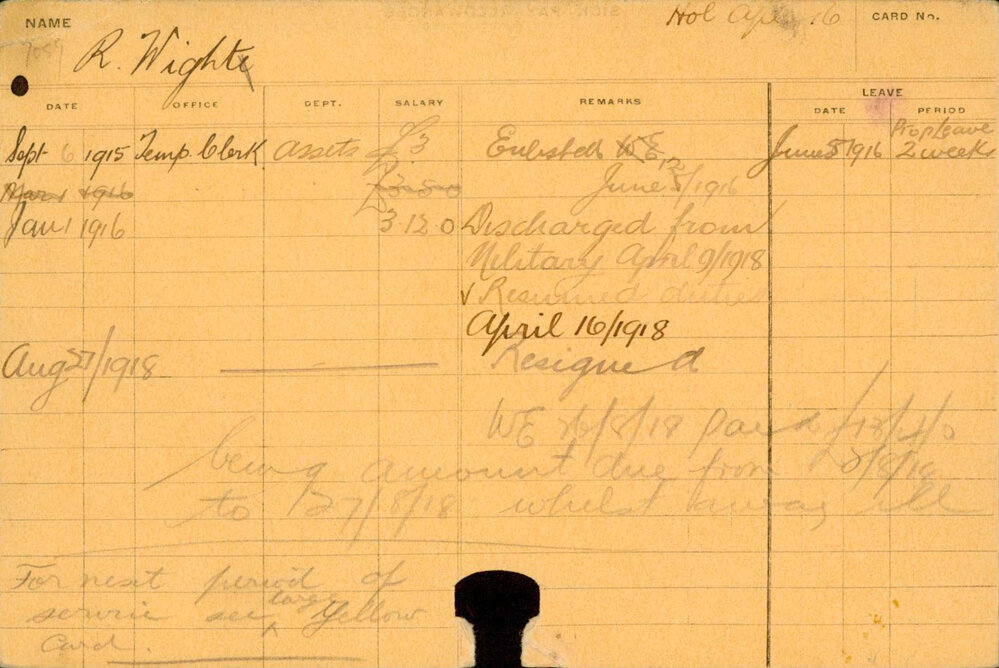 NAME
Hol Apr 16
CARD No.
R. Wight
LEAVE
DATE OFFICE DEPT. SALARY REMARKS DATE PERIOD
Sept 6 1915 Temp. Clerk Assets £3 Enlisted June 5 1916 Prop Leave 2 weeks
Mar 1 1916 June /1916
Jan 1 1916 3.12.0 Discharged from
Military April 9/1918
✓ Resumed duties
April 16/1918
Aug 27/1918 Resigned
WE /8/18 paid
being amount due from
to 27/8/18 whilst away ill
For next period of
service see large Yellow
Card.